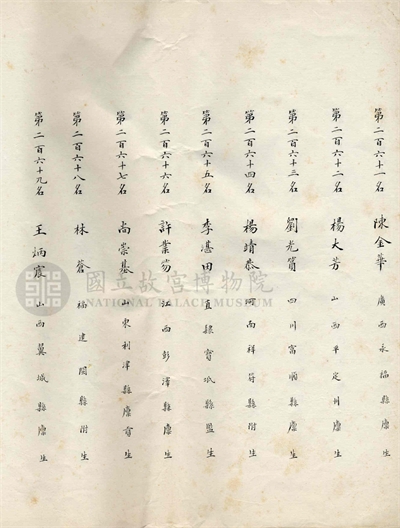 第二百六十一名 陳金華 廣西永福縣廩生
第二百六十二名 楊大芳 山西平定州廩生
第二百六十三名 劉光簣 四川富順縣廩生
第二百六十四名 楊靖恭 河南祥符縣附生
第二百六十五名 李湛田 直隸寶坻縣監生
第二百六十六名 許業笏 江西彭澤縣廩生
第二百六十七名 尚崇基 山東利津縣廩膳生
第二百六十八名 林蒼 福建閩縣附生
第二百六十九名 王炳宸 山西翼城縣廩生
國立故宮博物院
NATIONAL PALACE MUSEUM